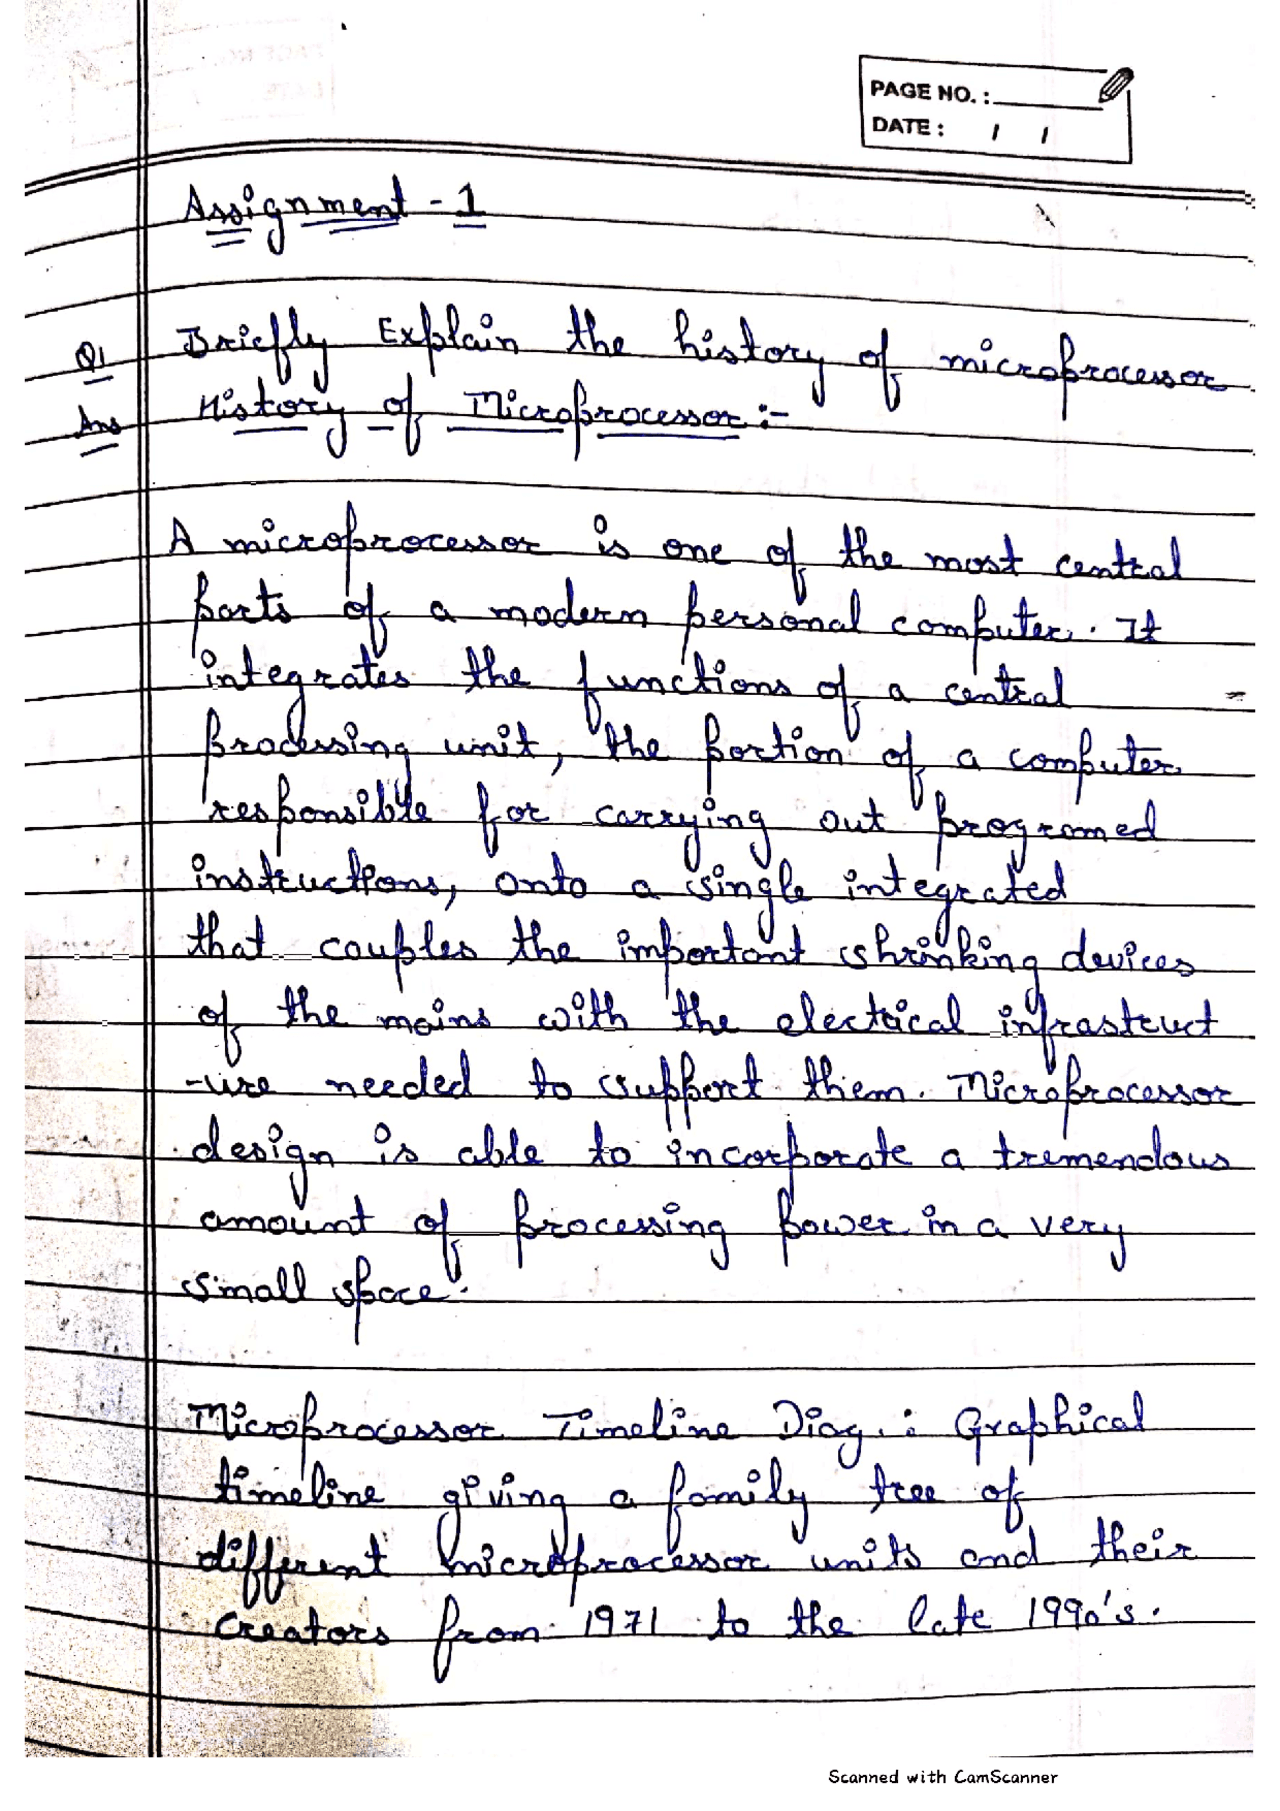 PAGE NO. :
DATE : / /
Assignment - 1
Q1 Briefly Explain the history of microprocessor
Ans History of Microprocessor :-
A microprocessor is one of the most central
parts of a modern personal computer. It
integrates the functions of a central
processing unit, the portion of a computer
responsible for carrying out programed
instructions, onto a single integrated
that couples the important shrinking devices
of the mains with the electrical infrastruct
-ure needed to support them. Microprocessor
design is able to incorporate a tremendous
amount of processing power in a very
small space.
Microprocessor Timeline Diag. : Graphical
timeline giving a family tree of
different microprocessor units and their
Creators from 1971 to the late 1990's.
Scanned with CamScanner